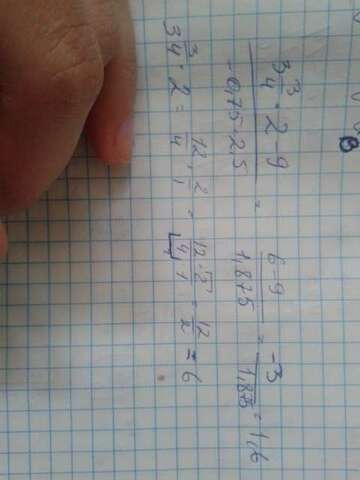 3 3/4 · 2 - 9 / -0,75 · 2,5 = 6 9 / 1,875 = -3 / 1,875 = 1,6
3 3/4 · 2 = 12/4 · 2/1 = 12 · 2 / 4 · 1 = 12/2 = 6